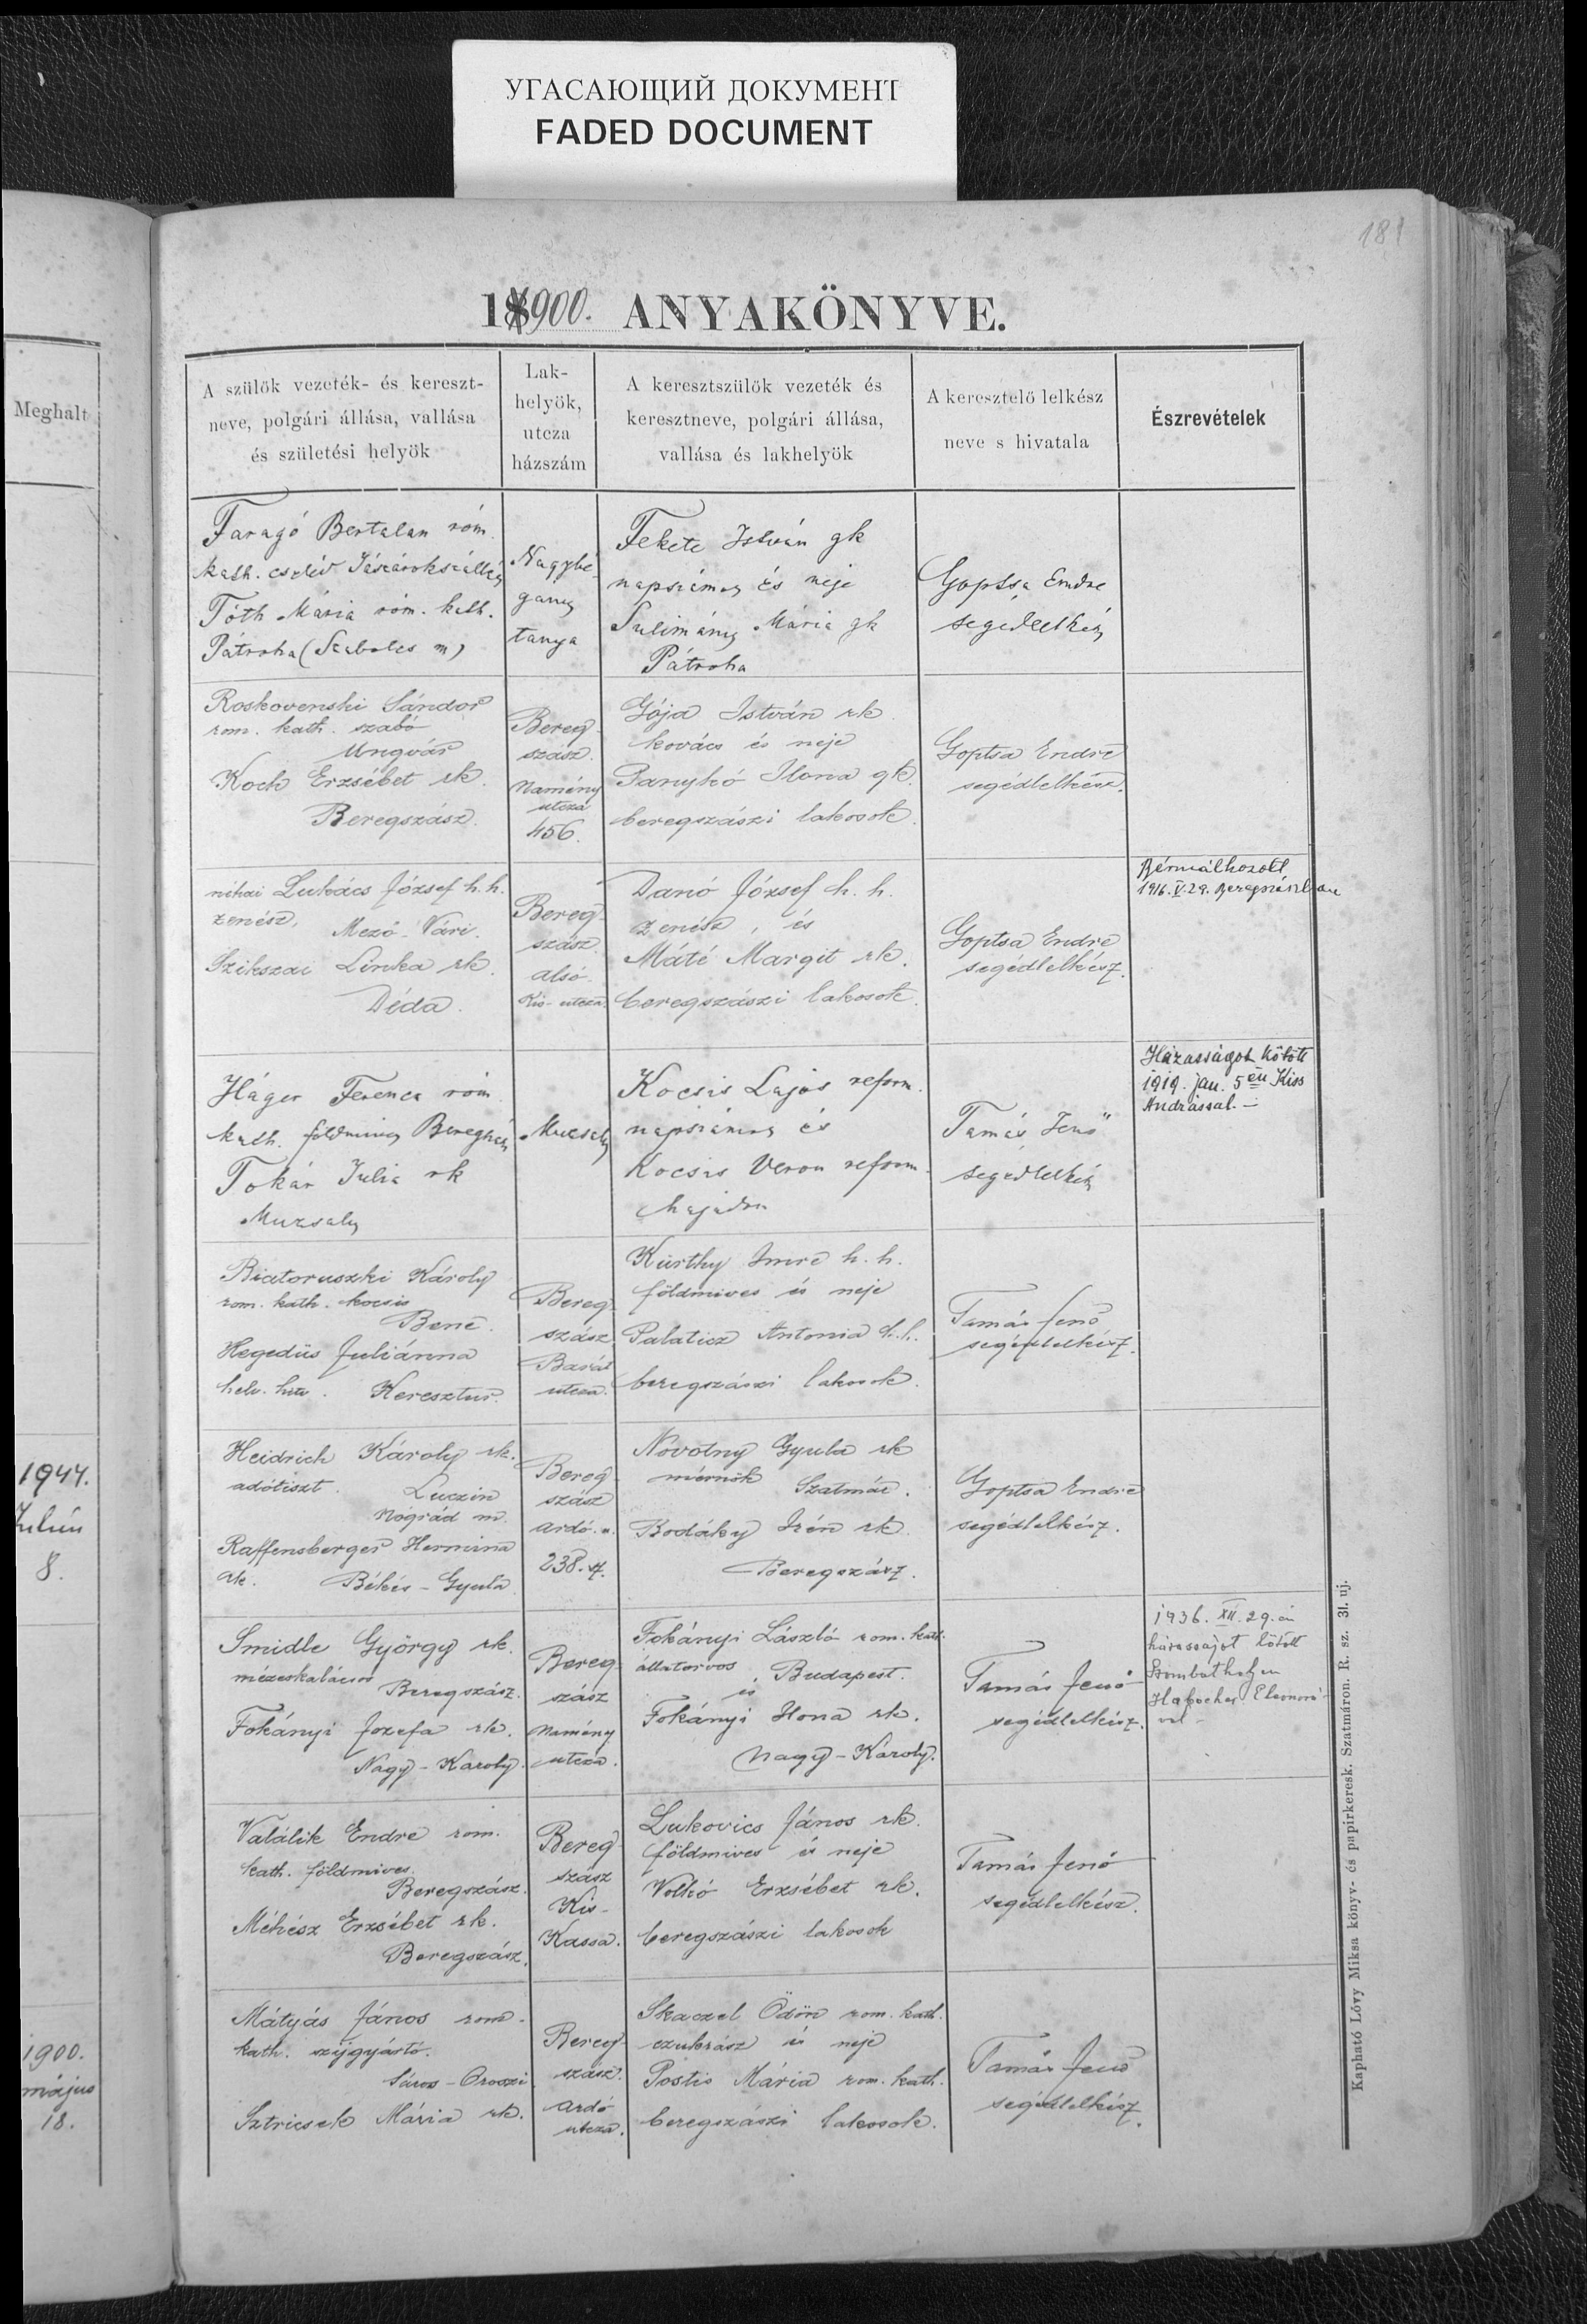 УГАСАЮЩИЙ ДОКУМЕНТ
FADED DOCUMENT
181
1900. ANYAKÖNYVE.
Meghalt
A szülök vezeték- és kereszt-
neve, polgári állása, vallása
és születési helyök
Lak-
helyök,
utcza
házszám
A keresztszülök vezeték és
keresztneve, polgári állása,
vallása és lakhelyök
A keresztelő lelkész
neve s hivatala
Észrevételek
Faragó Bertalan róm.
kath. cseléd Jászárokszállás
Tóth Mária róm. kath.
Pátroha (Szabolcs m)
Nagybé-
gany
tanya
Fekete István gk
napszámos és neje
Sulimány Mária gk
Pátroha
Goptsa Endre
segédlelkész
Roskovenski Sándor
rom. kath. szabó
Ungvár
Koch Erzsébet rk.
Beregszász.
Bereg-
szász.
Namény
utcza
456.
Gója István rk.
kovács és neje
Panykó Ilona gk.
beregszászi lakosok.
Goptsa Endre
segédlelkész.
néhai Lukács József h. h.
zenész, Mező-Vári.
Szikszai Linka rk.
Déda.
Bereg-
szász
alsó
Kis-utcza.
Danó József h. h.
zenész, és
Máté Margit rk.
beregszászi lakosok.
Goptsa Endre
segédlelkész.
Bérmálkozott
1916. V. 29. Beregszászban
Háger Ferencz róm
kath. földmives Beregszász
Tokár Julia rk
Muzsaly
Muzsaly
Kocsis Lajos reform.
napszámos és
Kocsis Veron reform.
hajadon
Tamás Jenő
segédlelkész
Házasságot kötött
1919. jan. 5 én Kiss
Andrással. –
Biatoruszki Károly
rom. kath. kocsis
Bene.
Hegedüs Juliánna
helv. hitv. Keresztur.
Bereg-
szász
Barát
utcza.
Kürthy Imre h. h.
földmives és neje
Palaticz Antonia h. h.
beregszászi lakosok.
Tamás Jenő
segédlelkész.
1944.
Julius
8.
Heidrich Károly rk.
adótiszt. Luczin
Nográd m.
Raffensberger Hermina
rk. Békés-Gyula
Bereg-
szász
ardó. u.
238.
Novotny Gyula rk
mérnök Szatmár.
Bodáky Irén rk
Beregszász.
Goptsa Endre
segédlelkész.
Smidle György rk.
mézeskalácsos
Beregszász.
Fokányi Jozefa rk.
Nagy-Karoly.
Bereg-
szász
Namény
utcza.
Fokányi László rom. kath.
állatorvos Budapest.
és
Fokányi Ilona rk.
Nagy-Károly.
Tamás Jenő
segédlelkész.
1936. XII. 29. én
házasságot kötött
Szombathelyen
Eleonorá-
val –
Valálik Endre rom.
kath. földmives
Beregszász.
Méhész Erzsébet rk.
Beregszász.
Bereg-
szász
Kis-
Kassa.
Lukovics János rk.
földmives és neje
Volkó Erzsébet rk.
beregszászi lakosok
Tamás Jenő
segédlelkész.
1900.
május
18.
Mátyás János rom.
kath. szijgyártó.
Sáros-Oroszi
Sztricsek Mária rk.
Bereg-
szász.
ardó
utcza.
Skaczel Ödön rom. kath.
czukrász és neje
Postis Mária rom. kath.
beregszászi lakosok.
Tamás Jenő
segédlelkész.
Kapható Lővy Miksa könyv- és papirkeresk. Szatmáron. R. sz. 3l. uj.